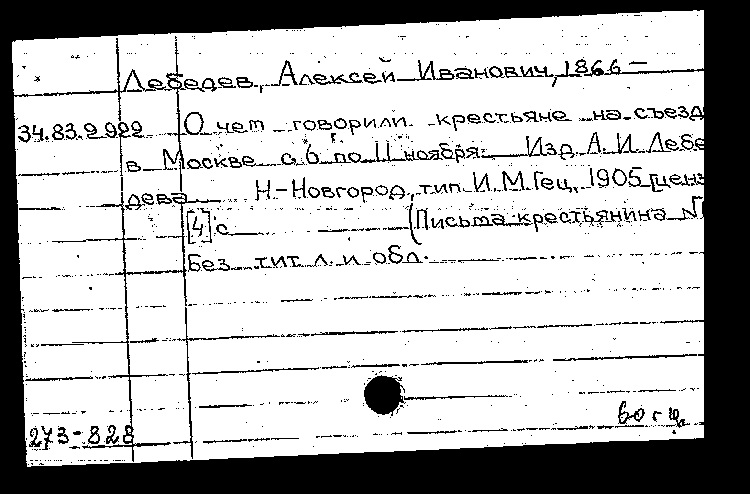 Лебедев, Алексей Иванович, 1866 —
34.83.9.929 О чем говорили крестьяне на съезд
в Москве с 6 по 11 ноября. Изд. А. И. Лебе
дева Н.-Новгород, тип. И. М. Гец, 1905 [ценз
[4] с (Письма крестьянина №
Без тит. л. и обл.
273-828